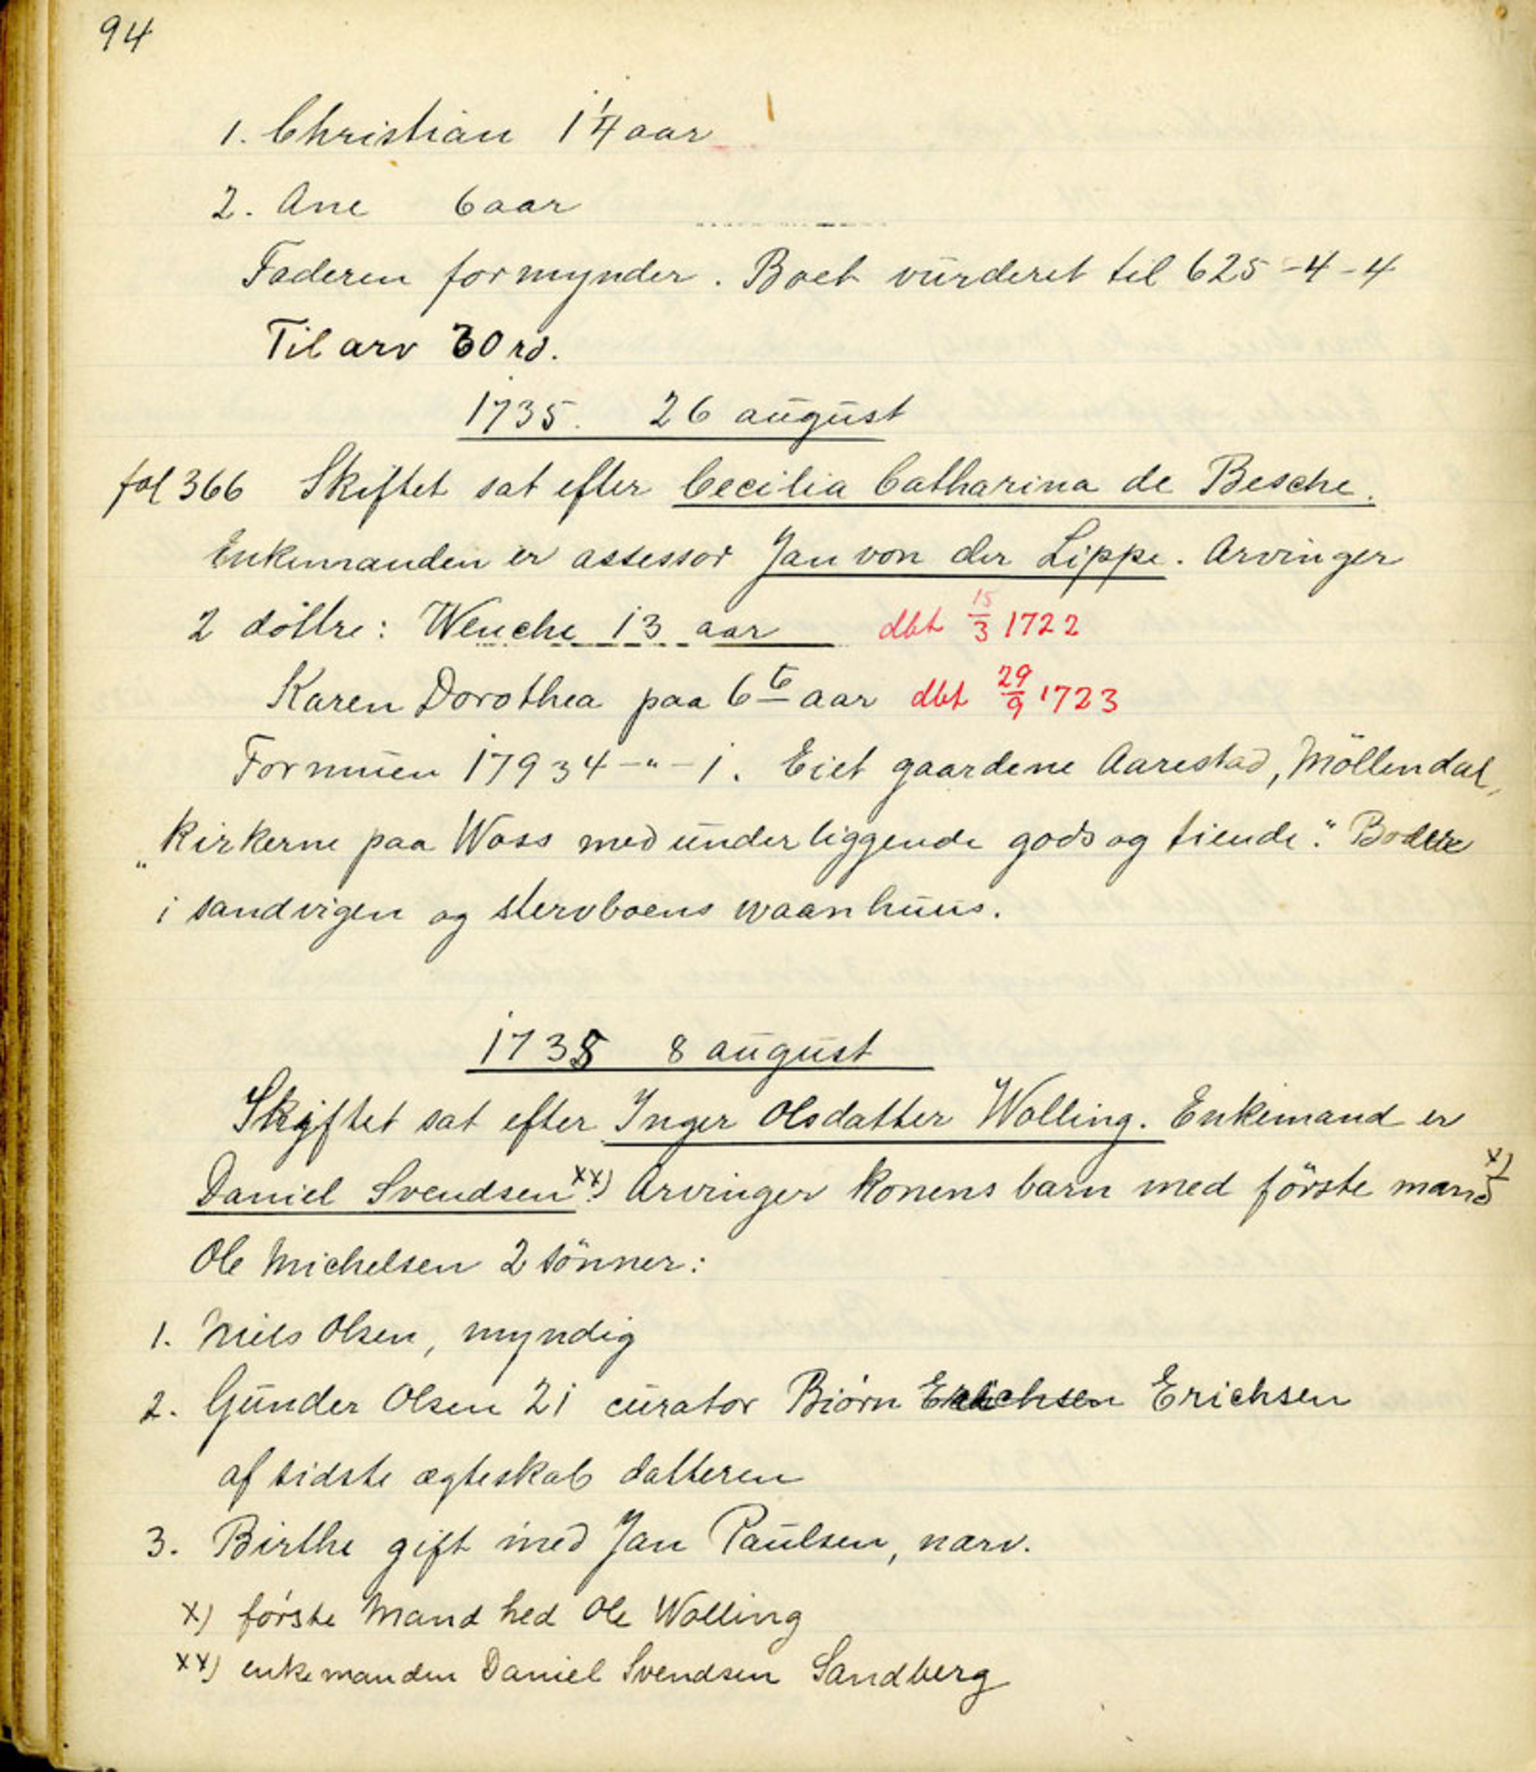 94
1. Christian 14 aar
2. Ane 6 aar
Faderen formynder. Boet vurderet til 625-4-4
Til arv 30 rd.
1735. 26 august
fol 366 Skiftet sat efter Cecilia Catharina de Besche.
Enkemanden er assessor Jan von der Lippe. Arvinger
2 döttre: Wenche 13 aar dbt 15/3 1722
Karen Dorothea paa 6te aar dbt 29/9 1723
Formuen 17934-"-1. Eiet gaardene Aarestad, Möllendal,
"Kirkerne paa Woss med underliggende gods og tiende." Boderne
i sandvigen og stervboens waanhuus.
1735 8 august
Skiftet sat efter Inger Olsdatter Wolling. Enkemand er
Daniel Svendsen xx) Arvinger konens barn med förste mand x)
Ole Michelsen 2 sönner:
1. Niels Olsen, myndig
2. Gunder Olsen 21 curator Biørn Erichsen Erichsen
af sidste ægteskab datteren
3. Birthe gift med Jan Paulsen, nærv.
x) første Mand hed Ole Wolling
xx) enkemanden Daniel Svendsen Sandberg